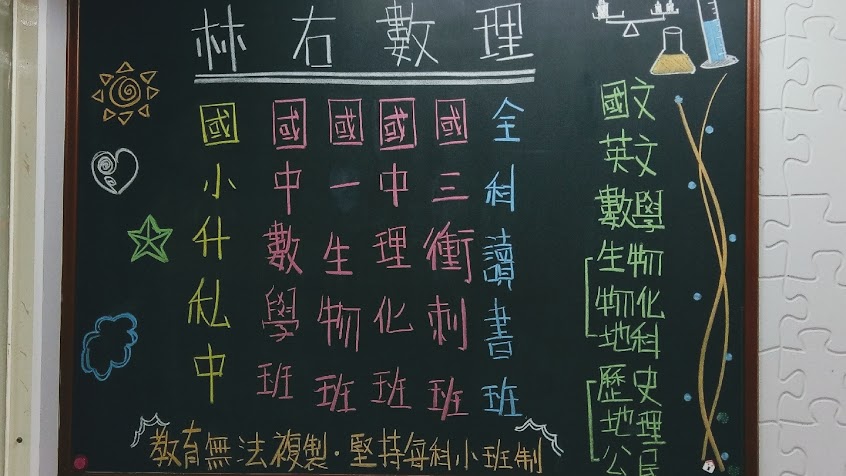 林右數理
國小升私中
國中數學班
國一生物班
國中理化班
國三衝刺班
全科讀書班
國文
英文
數學
生物
物化
地科
歷史
地理
公民
教育無法複製·堅持每科小班制